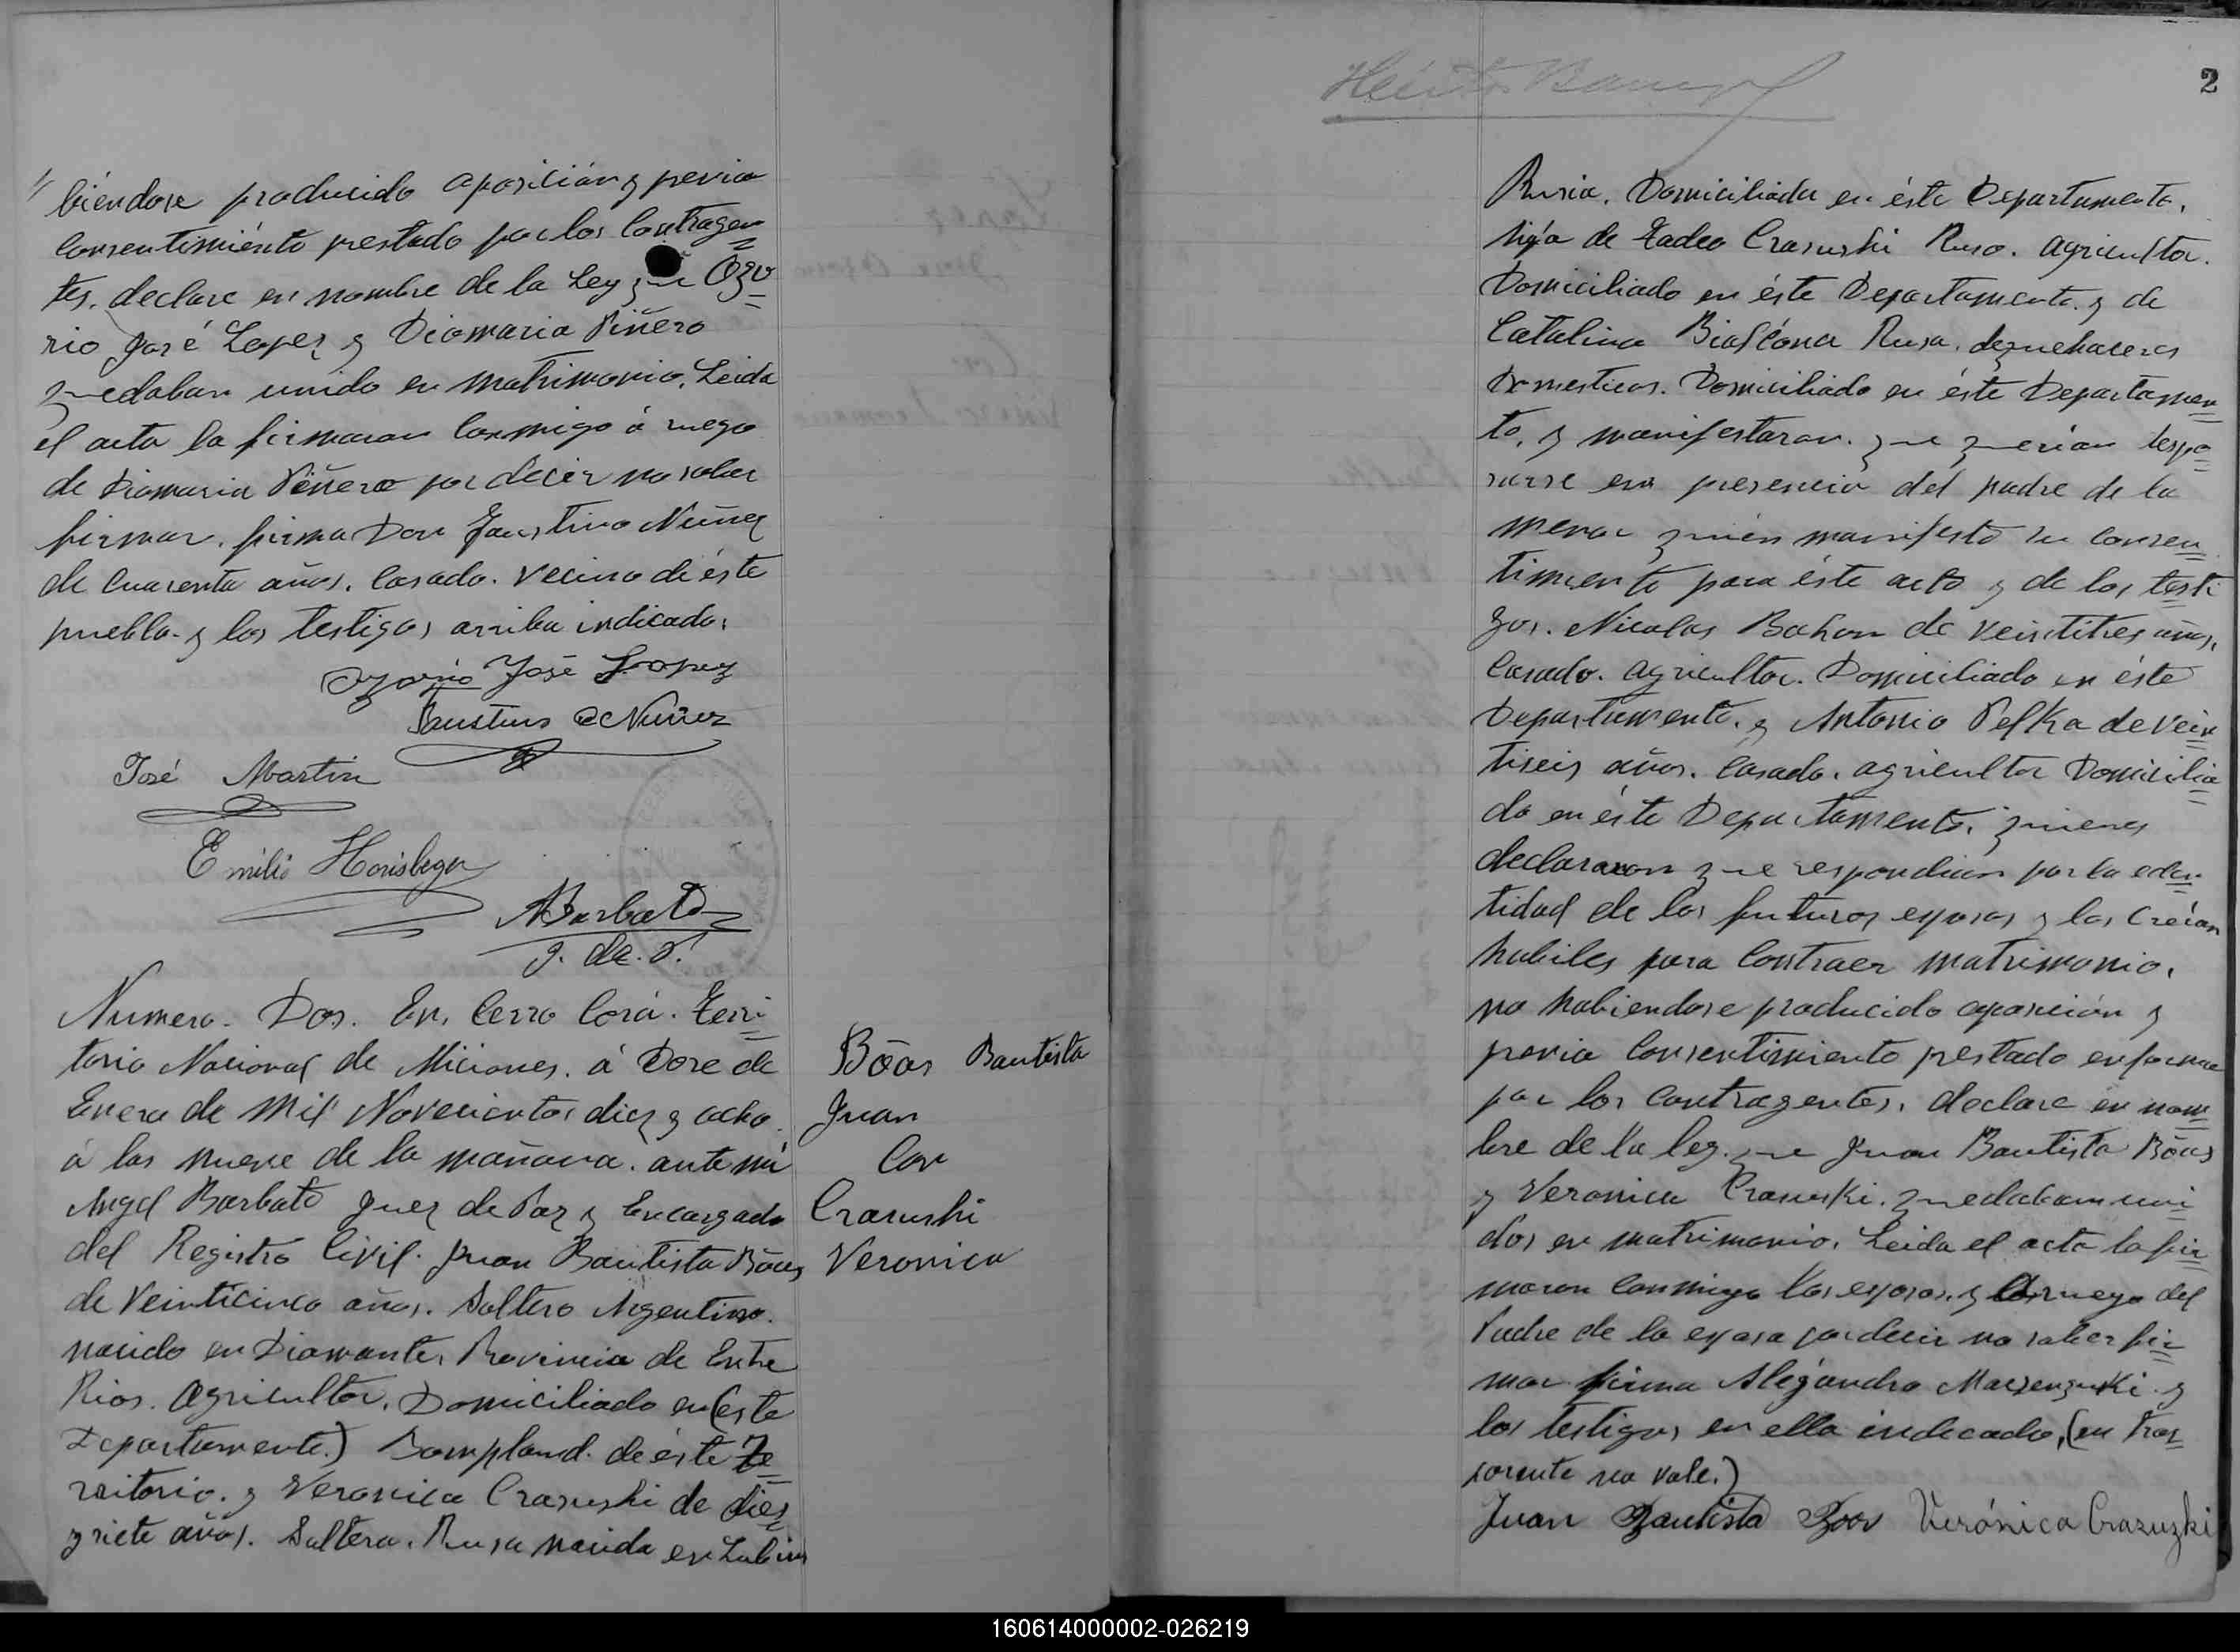 biéndose producido oposición y previa
consentimiénto prestado por los Contragen
tes. declare en nombre de la Ley que Ozo
rio José Lopez y Diomaria Piñero
quedaban unido en matrimonio. Leida
el acta la firmaron conmigo á ruego
de Diomaria Piñero por decir no saber
firmar. firma Don Faustino Nuñez
de Cuarenta años. Casado. Vecino de éste
pueblo y los testigos arriba indicado,
Ozorio José Lopez
Faustino Nuñez
José Martin
Emilio Horisberger
ABarbato
J. de. P.
Numero. Dos. En, Cerro Corá. Terri
torio Nacional de Miciones. á Dose de
Enero de Mil Novecientos diez y ocho.
á las nueve de la mañana. ante mi
Angel Barbato Juez de Paz y Encargado
del Registro Civil. Juan Bautista Bôas
de Veinticinco años. Soltero Argentino.
nacido en Diamante, Provincia de Entre
Rios. Agricultor. Domiciliado en (este
Departamento.) Bompland. de éste Te
rritorio. y Veronica Crasuski de dies
y siete años. Soltera. Rusa nacida en Lublin
Bôas Bautista
Juan
Con
Crasuski
Veronica
2
Rusia. Domiciliada en éste Departamento.
hija de Tadeo Crasuski Ruso. agricultor.
Domiciliado en éste Departamento. y de
Catalina Rusa. dequehaceres
Domesticos. Domiciliado en éste Departamen
to. y manifestaron. que querian despo
sarse en presencia del padre de la
menor quien manifesto su consen
timiento para éste acto y de los testi
gos. Nicolas Bahon de veintitres años,
Casado. agricultor. Domiciliado en éste
Departamento. y Antonio Pelka de vein
tiseis años. Casado. agricultor Domicilia
do en éste Departamento. quienes
declararon que respondian por la eden
tidad de los futuros esposos y los Creian
habiles para Contraer matrimonio.
no habiendose producido oposición y
previa Consentimiento prestado enforma
por los Contragentes. declare en nom
bre de la ley. que Juan Bautista Bôas
y Veronica Crasuski. quedabam uni
dos en matrimonio. Leida el acta lafir
maron Conmigo los esposos. y aruego del
Padre de la esposa pordecir no saber fir
mar firma Alejandro y
los testigos en ella indicado, (en
no vale.)
Juan Bautista Boos Verónica Crazuzki
160614000002-026219